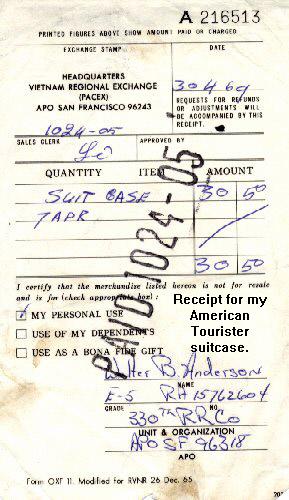 A 216513
PRINTED FIGURES ABOVE SHOW AMOUNT PAID OR CHARGED
EXCHANGE STAMP
DATE
HEADQUARTERS
VIETNAM REGIONAL EXCHANGE
(PACEX)
APO SAN FRANCISCO 96243
30469
REQUESTS FOR REFUNDS
OR ADJUSTMENTS WILL
BE ACCOMPANIED BY THIS
RECEIPT.
1024-05
SALES CLERK
APPROVED BY
QUANTITY ITEM AMOUNT
SUIT CASE 30 50
7 APR
30 50
PAID 1024-05
I certify that the merchandise listed hereon is not for resale
and is for (check appropriate box) :
MY PERSONAL USE
USE OF MY DEPENDENTS
USE AS A BONA FIDE GIFT
Receipt for my
American
Tourister
suitcase.
Walter B. Anderson
NAME
E-5 RA 15762604
GRADE NO.
330TH RR Co
UNIT & ORGANIZATION
APO SF 96318
APO
Form OXF 11. Modified for RVNR 26 Dec. 65